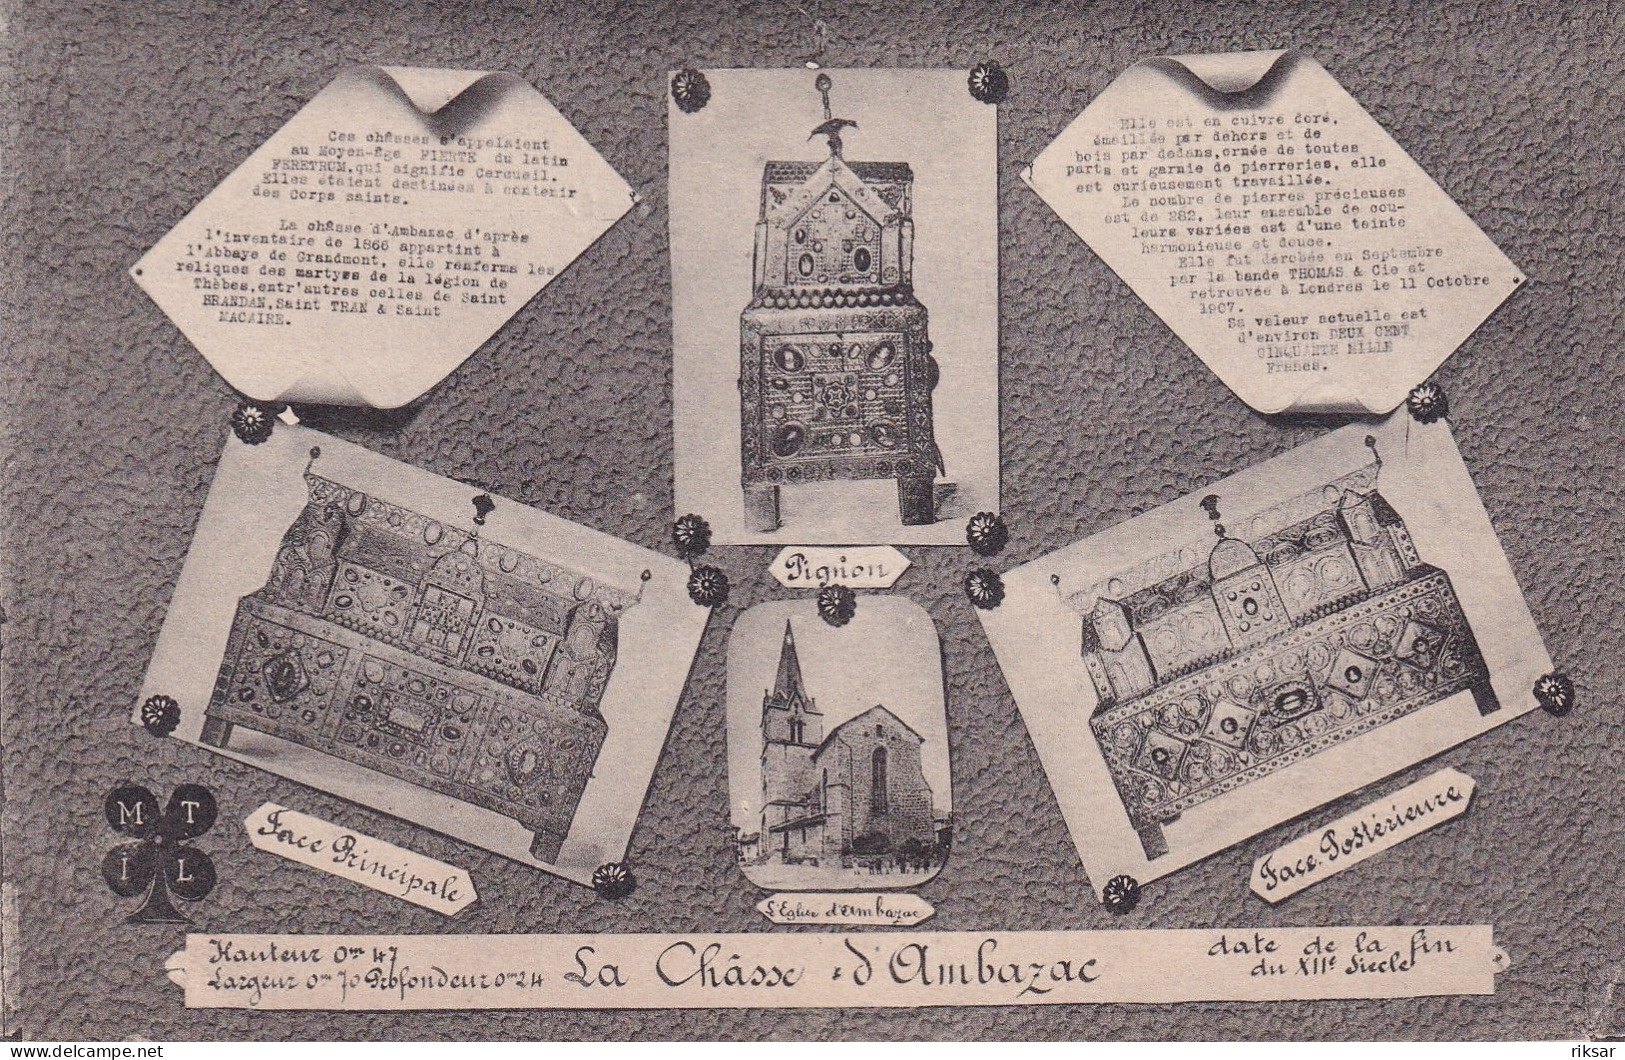 Ces châsses s'appelaient
au Moyen-âge FIERTE du latin
FERETRUM, qui signifie Cercueil.
Elles étaient destinées à contenir
des Corps saints.
La châsse d'Ambazac d'après
l'inventaire de 1866 appartint à
l'Abbaye de Grandmont, elle renferma les
reliques des martyrs de la légion de
Thèbes, entr'autres celles de Saint
BRANDAN, Saint TRAN & Saint
MACAIRE.
Elle est en cuivre doré,
émaillée par dehors et de
bois par dedans, ornée de toutes
parts et garnie de pierreries, elle
est curieusement travaillée.
Le nombre de pierres précieuses
est de 282, leur ensemble de cou-
leurs variées est d'une teinte
harmonieuse et douce.
Elle fut dérobée en Septembre
par la bande THOMAS & Cie et
retrouvée à Londres le 11 Octobre
1907.
Sa valeur actuelle est
d'environ DEUX CENT
CINQUANTE MILLE
Francs.
Pignon
Face Principale
L'Eglise d'Ambazac
Face Postérieure
M T
I L
Hauteur 0m 47
Largeur 0m 70 Profondeur 0m 24
La Châsse d'Ambazac
date de la fin
du XIIe Siècle
riksar
delcampe.net